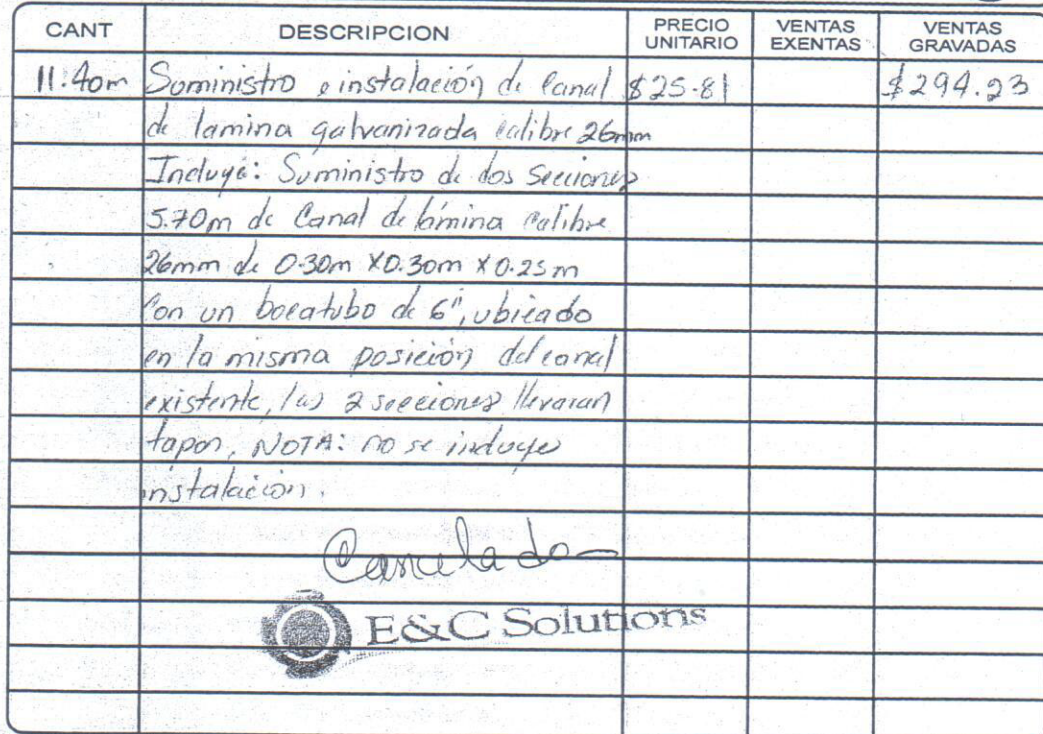 CANT DESCRIPCION PRECIO UNITARIO VENTAS EXENTAS VENTAS GRAVADAS
11.40m Suministro e instalación de Canal $25.81 $294.23
de lamina galvanizada calibre 26mm
Incluye: Suministro de dos Secciones
5.70m de Canal de lámina calibre
26mm de 0.30m X0.30m X 0.25m
Con un bocatubo de 6", ubicado
en la misma posición del canal
existente, las 2 secciones llevaran
tapon, NOTA: no se incluye
instalación.
Cancelado
E&C Solutions